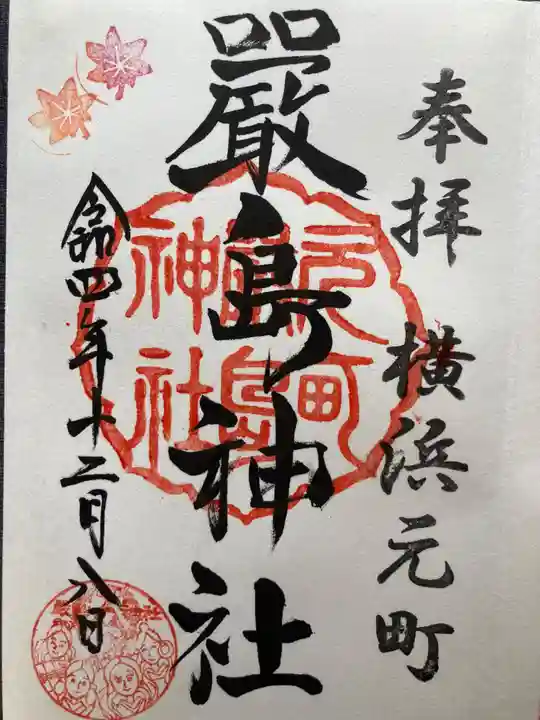 奉拝 横浜元町
嚴島神社
元町
嚴島
神社
令和四年十二月八日